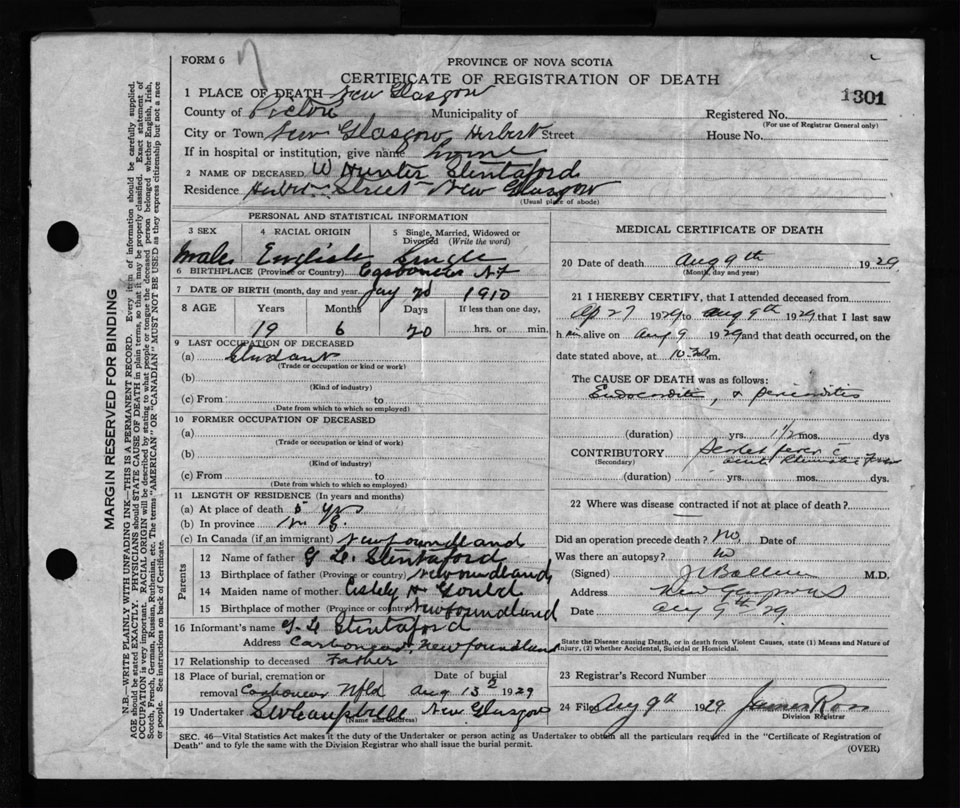 FORM 6
n
PROVINCE OF NOVA SCOTIA
CERTIFICATE OF REGISTRATION OF DEATH
1301
1 PLACE OF DEATH New Glasgow
County of Pictou Municipality of Registered No.
(For use of Registrar General only)
City or Town New Glasgow Herbert Street House No.
If in hospital or institution, give name home
2 NAME OF DECEASED W Hunter Stentaford
Residence Herbert Street New Glasgow
(Usual place of abode)
PERSONAL AND STATISTICAL INFORMATION
3 SEX 4 RACIAL ORIGIN 5 Single, Married, Widowed or Divorced (Write the word)
Male English Single
6 BIRTHPLACE (Province or Country) Carbonear N.F
7 DATE OF BIRTH (month, day and year) Jay 20 1910
8 AGE Years Months Days If less than one day,
19 6 20 hrs. or min.
9 LAST OCCUPATION OF DECEASED
(a) Student
(Trade or occupation or kind or work)
(b)
(Kind of industry)
(c) From to
(Date from which to which so employed)
10 FORMER OCCUPATION OF DECEASED
(a)
(Trade or occupation or kind of work)
(b)
(Kind of industry)
(c) From to
(Date from which to which so employed)
11 LENGTH OF RESIDENCE (In years and months)
(a) At place of death 5 yrs
(b) In province
(c) In Canada (if an immigrant) Newfoundland
Parents
12 Name of father G L. Stentaford
13 Birthplace of father (Province or country) Newfoundland
14 Maiden name of mother Gould
15 Birthplace of mother (Province or country) Newfoundland
16 Informant's name G. L Stentaford
Address Carbonear Newfoundland
17 Relationship to deceased Father
18 Place of burial, cremation or removal Carbonear Nfld Date of burial Aug 13 1929
19 Undertaker S W Campbell New Glasgow
(Name and address)
MEDICAL CERTIFICATE OF DEATH
20 Date of death Aug 9th 1929
(Month, day and year)
21 I HEREBY CERTIFY, that I attended deceased from
Ap 27 1929 to Aug 9th 1929 that I last saw
him alive on Aug 9 1929 and that death occurred, on the
date stated above, at 10 30 a m.
The CAUSE OF DEATH was as follows:
Endocarditis, & pericarditis
(duration) yrs. 1 1/2 mos. dys
CONTRIBUTORY Scarlet fever c
(Secondary) acute Rheumatic Fever
(duration) yrs. mos. dys.
22 Where was disease contracted if not at place of death?
Did an operation precede death? No Date of
Was there an autopsy? No
(Signed) M.D.
Address New Glasgow NS
Date Aug 9th 29
State the Disease causing Death, or in death from Violent Causes, state (1) Means and Nature of
Injury, (2) whether Accidental, Suicidal or Homicidal.
23 Registrar's Record Number
24 Filed Aug 9th 1929 James Ross
Division Registrar
SEC. 46—Vital Statistics Act makes it the duty of the Undertaker or person acting as Undertaker to obtain all the particulars required in the "Certificate of Registration of
Death" and to fyle the same with the Division Registrar who shall issue the burial permit.
(OVER)
MARGIN RESERVED FOR BINDING
N.B.—WRITE PLAINLY WITH UNFADING INK—THIS IS A PERMANENT RECORD. Every item of information should be carefully supplied.
AGE should be stated EXACTLY. PHYSICIANS should STATE CAUSE OF DEATH in plain terms, so that it may be properly classified. Exact statement of
OCCUPATION is very important. RACIAL ORIGIN will be described by stating to what people or tongue the deceased person belonged whether English, Irish,
Scotch, French, German, Russian, Ruthenian, etc. The terms "AMERICAN" OR "CANADIAN" MUST NOT BE USED as they express citizenship but not a race
or people. See instructions on back of Certificate.